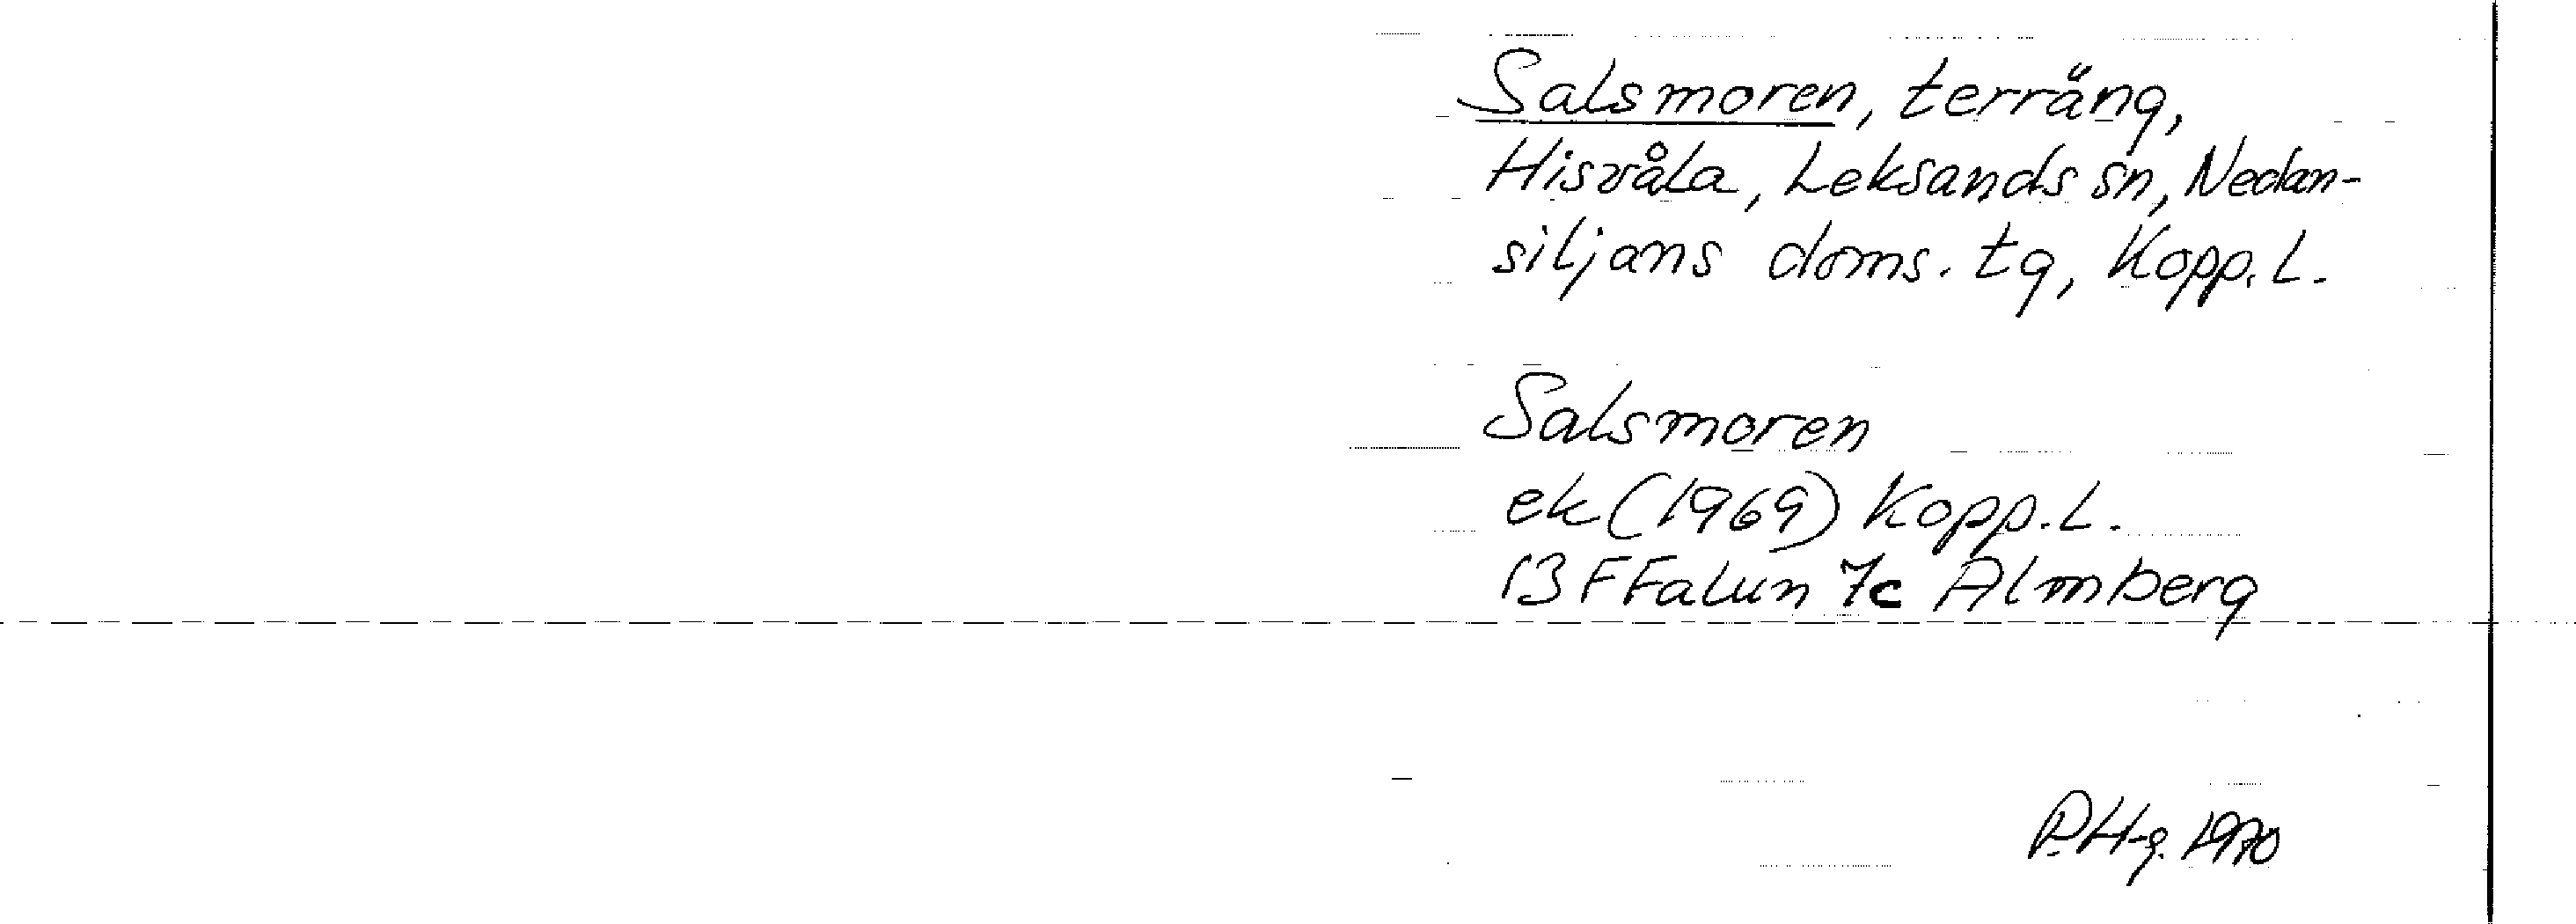 Salsmoren, terräng,
Hisvåla, Leksands sn, Nedan-
siljans doms. tg, Kopp. L.
Salsmoren
ek (1969) Kopp. L.
13 F Falun 7c Almberg
P.H-g. 1970